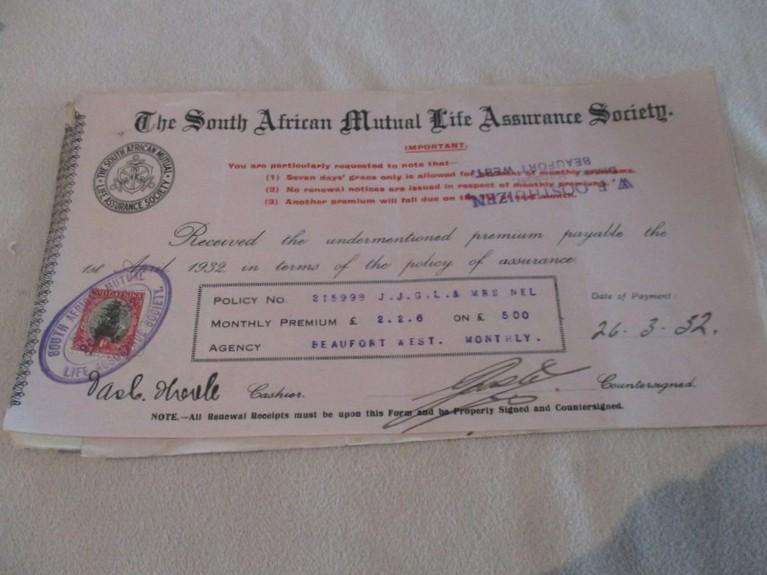 The South African Mutual Life Assurance Society.
THE SOUTH AFRICAN MUTUAL LIFE ASSURANCE SOCIETY
IMPORTANT.
You are particularly requested to note that—
(1) Seven days' grace only is allowed for payment of monthly premiums.
(2) No renewal notices are issued in respect of monthly premiums.
(3) Another premium will fall due on the next month.
BEAUFORT WEST.
Received the undermentioned premium payable the
1st April 1932 in terms of the policy of assurance
SOUTH AFRICAN MUTUAL LIFE ASSURANCE SOCIETY.
POLICY No. 215999 J.J.G.L.& MRS NEL
MONTHLY PREMIUM £ 2.2.6 ON £ 500
AGENCY BEAUFORT WEST. MONTHLY.
Date of Payment:
26-3-32.
Cashier.
Countersigned.
NOTE.—All Renewal Receipts must be upon this Form and be Properly Signed and Countersigned.